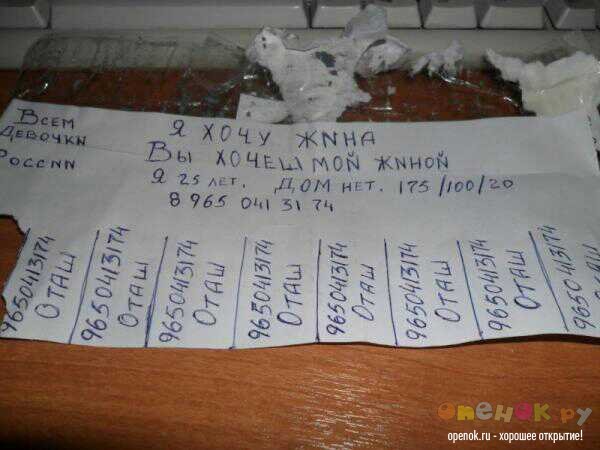 Всем
девочки
России
Я хочу жина
Вы хочеш мой жиной
Я 25 лет. Дом нет. 175/100/20
8 965 041 31 74
9650413174
Оташ
9650413174
Оташ
9650413174
Оташ
9650413174
Оташ
9650413174
Оташ
9650413174
Оташ
9650413174
опенок.ру
openok.ru - хорошее открытие!